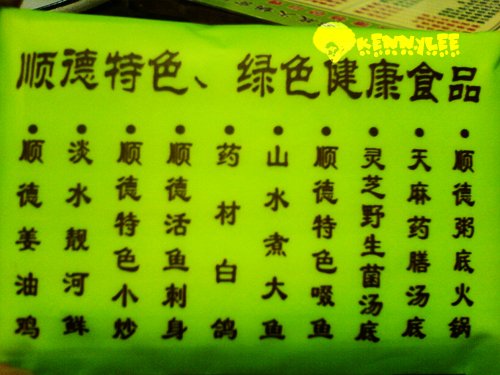 KENNYLEE
顺德特色、绿色健康食品
•顺德粥底火锅
•天麻药膳汤底
•灵芝野生菌汤底
•顺德特色啜鱼
•山水煮大鱼
•药材白鸽
•顺德活鱼刺身
•顺德特色小炒
•淡水靓河鲜
•顺德姜油鸡